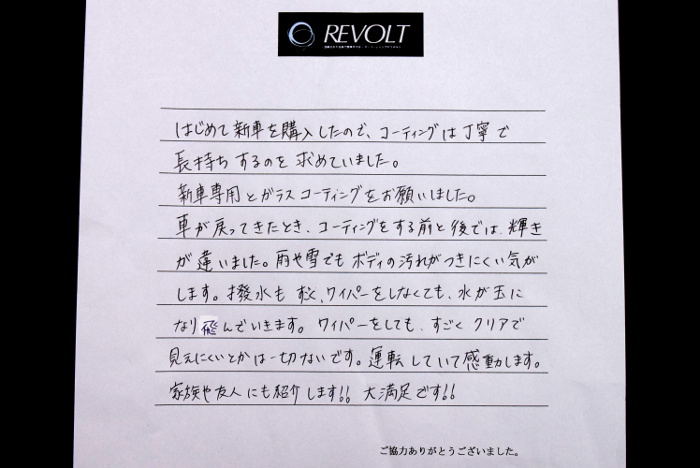 REVOLT
はじめて新車を購入したので、コーティングは丁寧で
長持ちするのを求めていました。
新車専用とガラスコーティングをお願いしました。
車が戻ってきたとき、コーティングをする前と後では、輝き
が違いました。雨や雪でもボディの汚れがつきにくい気が
します。撥水もすごく、ワイパーをしなくても、水が玉に
なり飛んでいきます。ワイパーをしても、すごくクリアで
見えにくいとかは一切ないです。運転していて感動します。
家族や友人にも紹介します!! 大満足です!!
ご協力ありがとうございました。